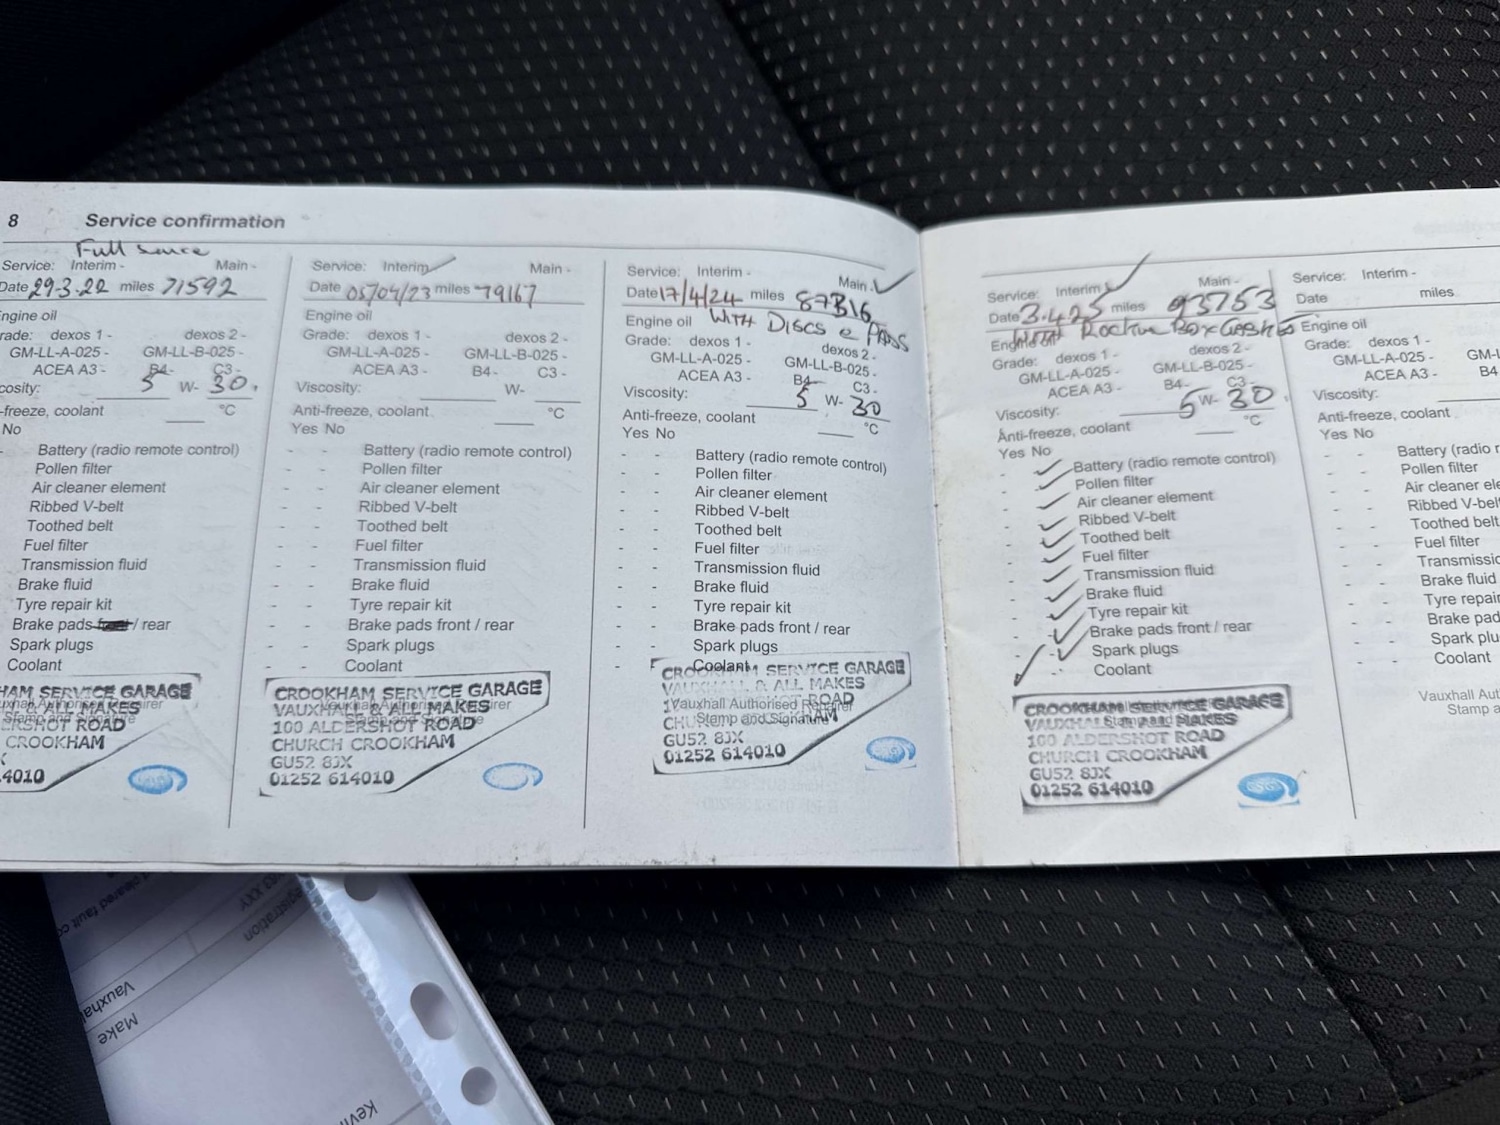 8 Service confirmation
Full
Service: Interim - Main -
Date 29.3.22 miles 71592
ngine oil
rade: dexos 1 - dexos 2 -
GM-LL-A-025 - GM-LL-B-025 -
ACEA A3 - B4 - C3 -
cosity: 5 W- 30.
-freeze, coolant °C
No
Battery (radio remote control)
Pollen filter
Air cleaner element
Ribbed V-belt
Toothed belt
Fuel filter
Transmission fluid
Brake fluid
Tyre repair kit
Brake pads / rear
Spark plugs
Coolant
HAM SERVICE GARAGE
& ALL MAKES
ERSHOT ROAD
CROOKHAM
X
4010
Service: Interim Main -
Date 05/04/23 miles 79167
Engine oil
Grade: dexos 1 - dexos 2 -
GM-LL-A-025 - GM-LL-B-025 -
ACEA A3 - B4 - C3 -
Viscosity: W-
Anti-freeze, coolant °C
Yes No
- - Battery (radio remote control)
- - Pollen filter
- - Air cleaner element
- - Ribbed V-belt
- - Toothed belt
- - Fuel filter
- - Transmission fluid
- - Brake fluid
- - Tyre repair kit
- - Brake pads front / rear
- - Spark plugs
- - Coolant
CROOKHAM SERVICE GARAGE
VAUXHALL & ALL MAKES
100 ALDERSHOT ROAD
CHURCH CROOKHAM
GU52 8JX
01252 614010
Service: Interim - Main -
Date 17/4/24 miles 87816
Engine oil WITH DISCS & PADS
Grade: dexos 1 - dexos 2 -
GM-LL-A-025 - GM-LL-B-025 -
ACEA A3 - B4 - C3 -
Viscosity: 5 W- 30
Anti-freeze, coolant °C
Yes No
- - Battery (radio remote control)
- - Pollen filter
- - Air cleaner element
- - Ribbed V-belt
- - Toothed belt
- - Fuel filter
- - Transmission fluid
- - Brake fluid
- - Tyre repair kit
- - Brake pads front / rear
- - Spark plugs
- Coolant
CROOKHAM SERVICE GARAGE
VAUXHALL & ALL MAKES
Vauxhall Authorised Repairer
ROAD
Stamp and Signature
GU52 8JX
01252 614010
Service: Interim Main -
Date 3.4.25 miles 93753
Engine
Grade: dexos 1 - dexos 2 -
GM-LL-A-025 - GM-LL-B-025 -
ACEA A3 - B4 - C3 -
Viscosity: 5 W- 30
Anti-freeze, coolant °C
Yes No
- Battery (radio remote control)
- Pollen filter
- Air cleaner element
- Ribbed V-belt
- Toothed belt
- Fuel filter
- Transmission fluid
- Brake fluid
- Tyre repair kit
- Brake pads front / rear
- Spark plugs
Coolant
CROOKHAM SERVICE GARAGE
VAUXHALL & ALL MAKES
100 ALDERSHOT ROAD
CHURCH CROOKHAM
GU52 8JX
01252 614010
Service: Interim -
Date miles
Engine oil
Grade: dexos 1 -
GM-LL-A-025 - GM-L
ACEA A3 - B4
Viscosity:
Anti-freeze, coolant
Yes No
- - Battery (radio r
- - Pollen filter
- - Air cleaner ele
- - Ribbed V-belt
- - Toothed belt
- - Fuel filter
- - Transmissio
- - Brake fluid
- - Tyre repair
- - Brake pad
- - Spark plu
- - Coolant
Vauxhall Aut
Stamp a
cleared fault c
XXY
gistration
Vauxha
Make
Kevi